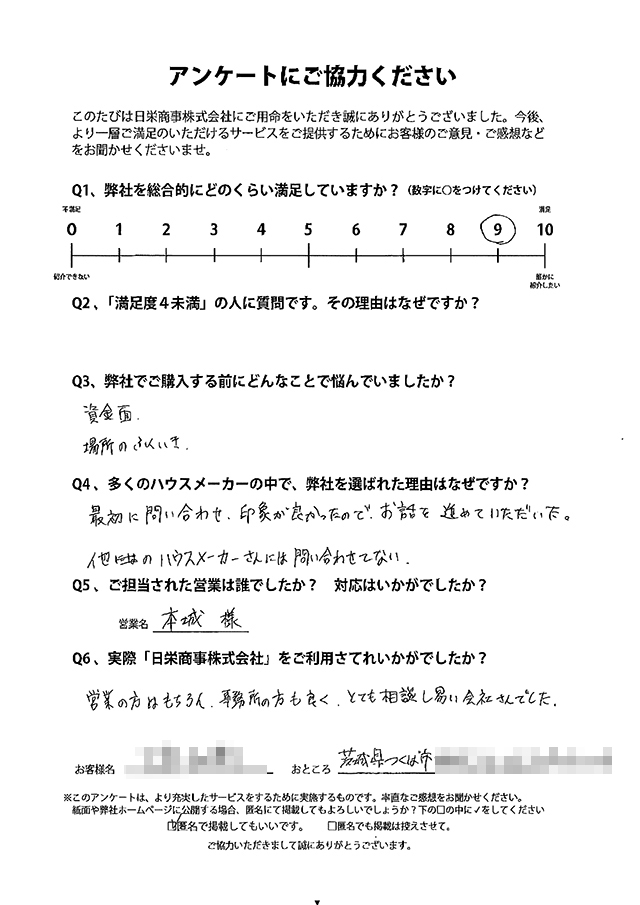 アンケートにご協力ください
このたびは日栄商事株式会社にご用命をいただき誠にありがとうございました。今後、
より一層ご満足のいただけるサービスをご提供するためにお客様のご意見・ご感想など
をお聞かせくださいませ。
Q1、弊社を総合的にどのくらい満足していますか？（数字に○をつけてください）
不満足 満足
0 1 2 3 4 5 6 7 8 9 10
紹介できない 誰かに
紹介したい
Q2、「満足度４未満」の人に質問です。その理由はなぜですか？
Q3、弊社でご購入する前にどんなことで悩んでいましたか？
資金面.
場所のふんいき.
Q4、多くのハウスメーカーの中で、弊社を選ばれた理由はなぜですか？
最初に問い合わせ、印象が良かったので、お話を進めていただいた。
他にはのハウスメーカーさんには問い合わせてない.
Q5、ご担当された営業は誰でしたか？　対応はいかがでしたか？
営業名 本城 様
Q6、実際「日栄商事株式会社」をご利用さてれいかがでしたか？
営業の方はもちろん、事務所の方も良く、とても相談し易い会社さんでした.
お客様名 おところ 茨城県つくば市
※このアンケートは、より充実したサービスをするために実施するものです。率直なご感想をお聞かせください。
紙面や弊社ホームページに公開する場合、匿名にて掲載してもよろしいでしょうか？下の□の中に✓をしてください
☑匿名で掲載してもいいです。 □匿名でも掲載は控えさせて。
ご協力いただきまして誠にありがとうございます。